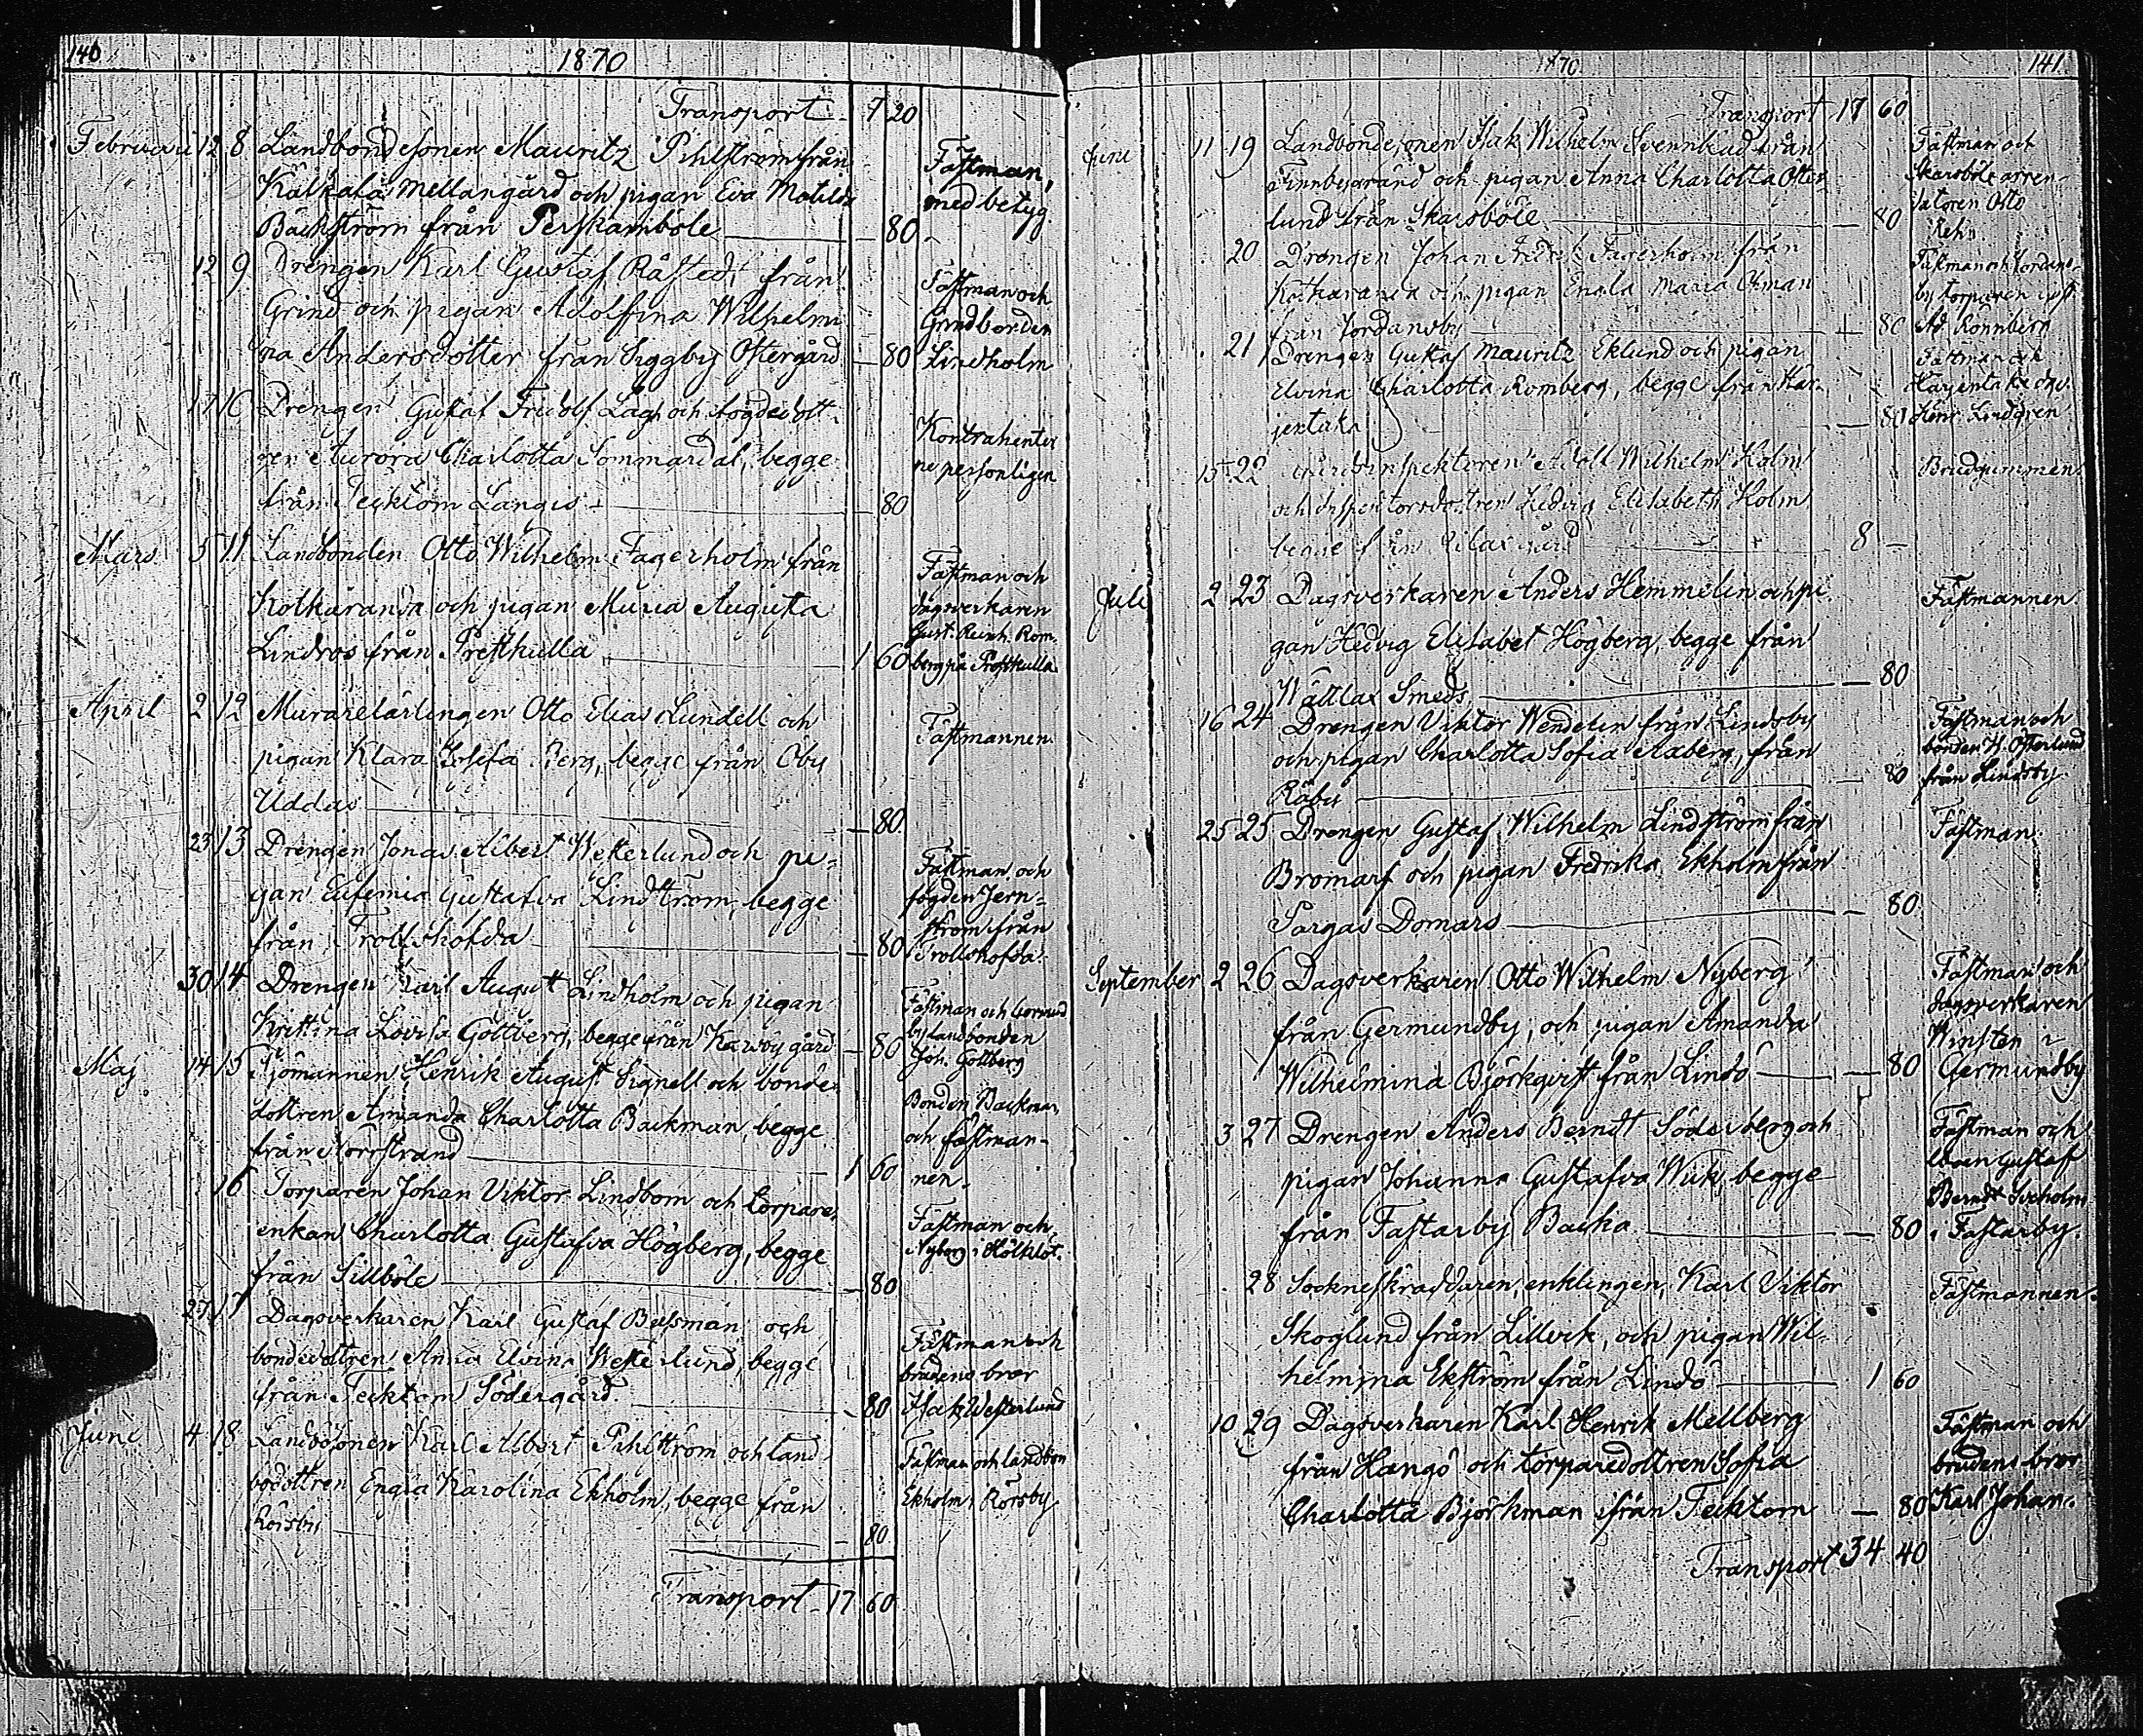 140
1870
Transport 7 20
Februari 12 8 Landbondesonen Mauritz Pihlström från
Kälkala Mellangård och pigan Eva Matilda
Bäckström från Perskamböle — 80
Fästman,
med betyg.
12 9 Drengen Karl Gustaf Råstedt från
Grind och pigan Adolfina Wilhelmi
na Andersdotter från Siggby Östergård — 80
Fästman och
Grindbonden
Lindholm
17 10 Drengen Gustaf Fridolf Lag och fogdedott
ren Aurora Charlotta Sommardal, begge
från Tecktom Langis — 80
Kontrahenter
ne personligen
Mars 5 11 Landbonden Otto Wilhelm Fagerholm från
Kolkaranda och pigan Maria Augusta
Lindros från Prestkulla 1 60
Fästman och
dagsverkaren
Gust. Reinh. Rom-
berg på Prestkulla
April 2 12 Murarelärlingen Otto Elias Lundell och
pigan Klara Josefa Berg, begge från Öby
Uddas — 80
Fästmannen
23 13 Drengen Jonas Albert Westerlund och pi-
gan Eufemia Gustafva Lindström, begge
från Trollshofda — 80
Fästman och
fogden Jern-
ström från
Trollshofda.
30 14 Drengen Karl August Lindholm och pigan
Kristina Lovisa Göttberg, begge från Kansby gård — 80
Fästman och Germund
by landbonden
Joh. Gottberg
Maj 14 15 Sjömannen Henrik August Signell och bonde-
dottren Amanda Charlotta Backman, begge
från Norrstrand 1 60
Bonden Backman
och fästman-
nen.
16 Torparen Johan Viktor Lindbom och torpare
enkan Charlotta Gustafva Högberg, begge
från Sillböle — 80
Fästman och
Nyberg i
27 17 Dagsverkaren Karl Gustaf Belsman och
bondedottren Anna Elvina Westerlund, begge
från Tecktom Södergård — 80
Fästman och
brudens bror
Isak Westerlund
Juni 4 18 Landbosonen Karl Albert Pihlström och land-
bodottren Engla Karolina Ekholm, begge från
Rörsby — 80
Fästman och landbon
Ekholm i Rörsby
Transport 17 60
1870
141
Transport 17 60
Juni 11 19 Landbondesonen Isak Wilhelm Svennblad från
Finnbyarand och pigan Anna Charlotta Öster-
lund från Skarsböle — 80
Fästman och
Skarsböle arren-
datoren Otto
Reh..
20 Drengen Johan Fredrik Fagerholm från
Kolkaranda och pigan Engla Maria Öhman
från Jordansby — 80
Fästman och Jordans-
by torparen
Ad. Rönnberg
21 Drengen Gustaf Mauritz Eklund och pigan
Elvina Charlotta Romberg, begge från Har-
jentaka — 80
Fästman och
Harjentaka dagv.
Henr. Lindgren
15 22 Gårdsinspektoren Adolf Wilhelm Holm
och inspektorsdottren Hedvig Elisabeth Holm
begge från gård 8 —
Brudgummen
Juli 2 23 Dagsverkaren Anders Hemmelin och pi-
gan Hedvig Elisabet Högberg, begge från
Wättlax Smeds — 80
Fästmannen.
16 24 Drengen Viktor Wendelin från Lindsby
och pigan Charlotta Sofia Aaberg, från
Råby — 80
Fästman och
bonden H. Österlund
från Lindsby.
25 25 Drengen Gustaf Wilhelm Lindström från
Bromarf och pigan Fredrika Ekholm från
Pargas Domars — 80
Fästman.
September 2 26 Dagsverkaren Otto Wilhelm Nyberg
från Germundby, och pigan Amanda
Wilhelmina Björkqvist från Lindö — 80
Fästman och
dagsverkaren
Winsten i
Germundby
3 27 Drengen Anders Berndt Söderberg och
pigan Johanna Gustafva Wiik, begge
från Fastarby Backa — 80
Fästman och
Gustaf
Berndt
i Fastarby.
28 Sockneskräddaren, enklingen, Karl Viktor
Skoglund från Lillvik, och pigan Wil-
helmina Ekström från Lindö 1 60
Fästmannen.
10 29 Dagsverkaren Karl Henrik Mellberg
från Hangö och torparedottren Sofia
Charlotta Björkman från Tecktom — 80
Fästman och
brudens bror
Karl Johan.
Transport 34 40